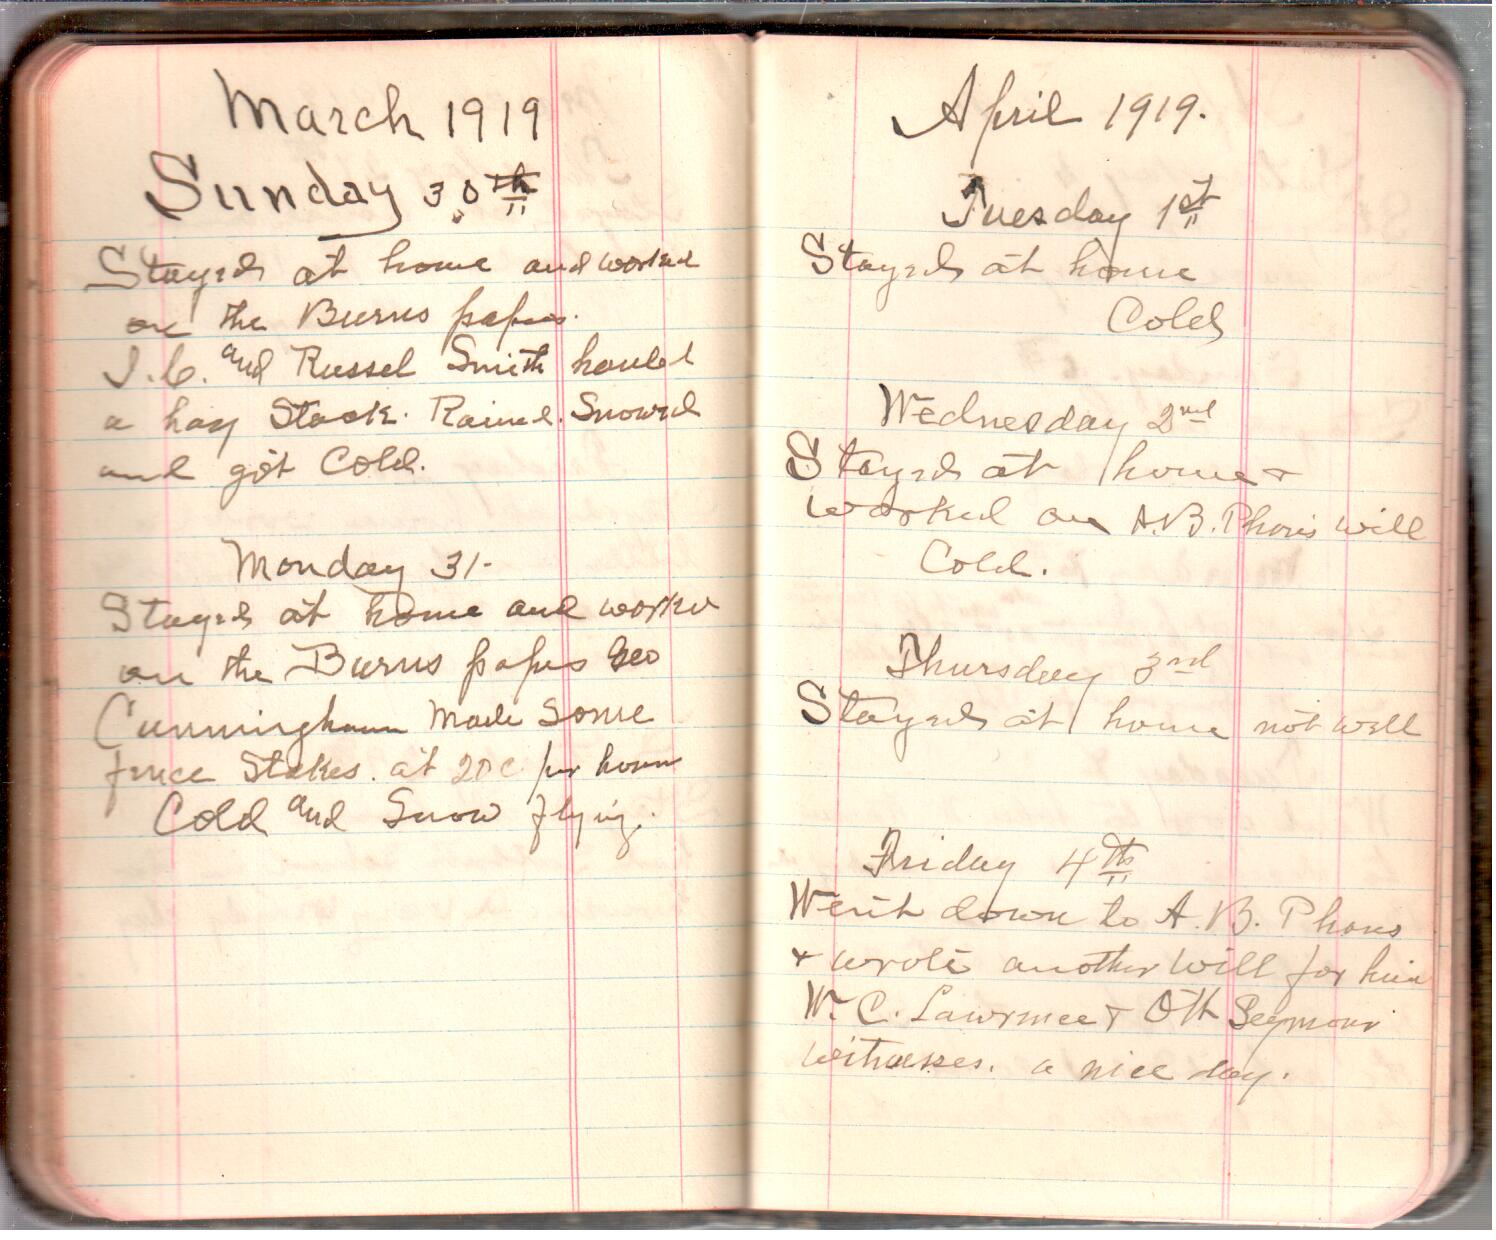 March 1919
Sunday 30th
Stayed at home and worked
on the Burns papers.
J.C. and Russel Smith hauled
a hay Stack. Rained. Snowed
and got Cold.
Monday 31-
Stayed at home and worked
on the Burns papers Geo
Cunningham Made Some
fence Stakes. at 20c per hour
Cold and Snow flying.
April 1919.
Tuesday 1st
Stayed at home
Cold
Wednesday 2nd
Stayed at home +
worked on A.B. will
Cold.
Thursday 3rd
Stayed at home not well
Friday 4th
Went down to A.B.
+ wrote another will for him
W.C. Lawrence + Seymour
witnesses. a nice day.